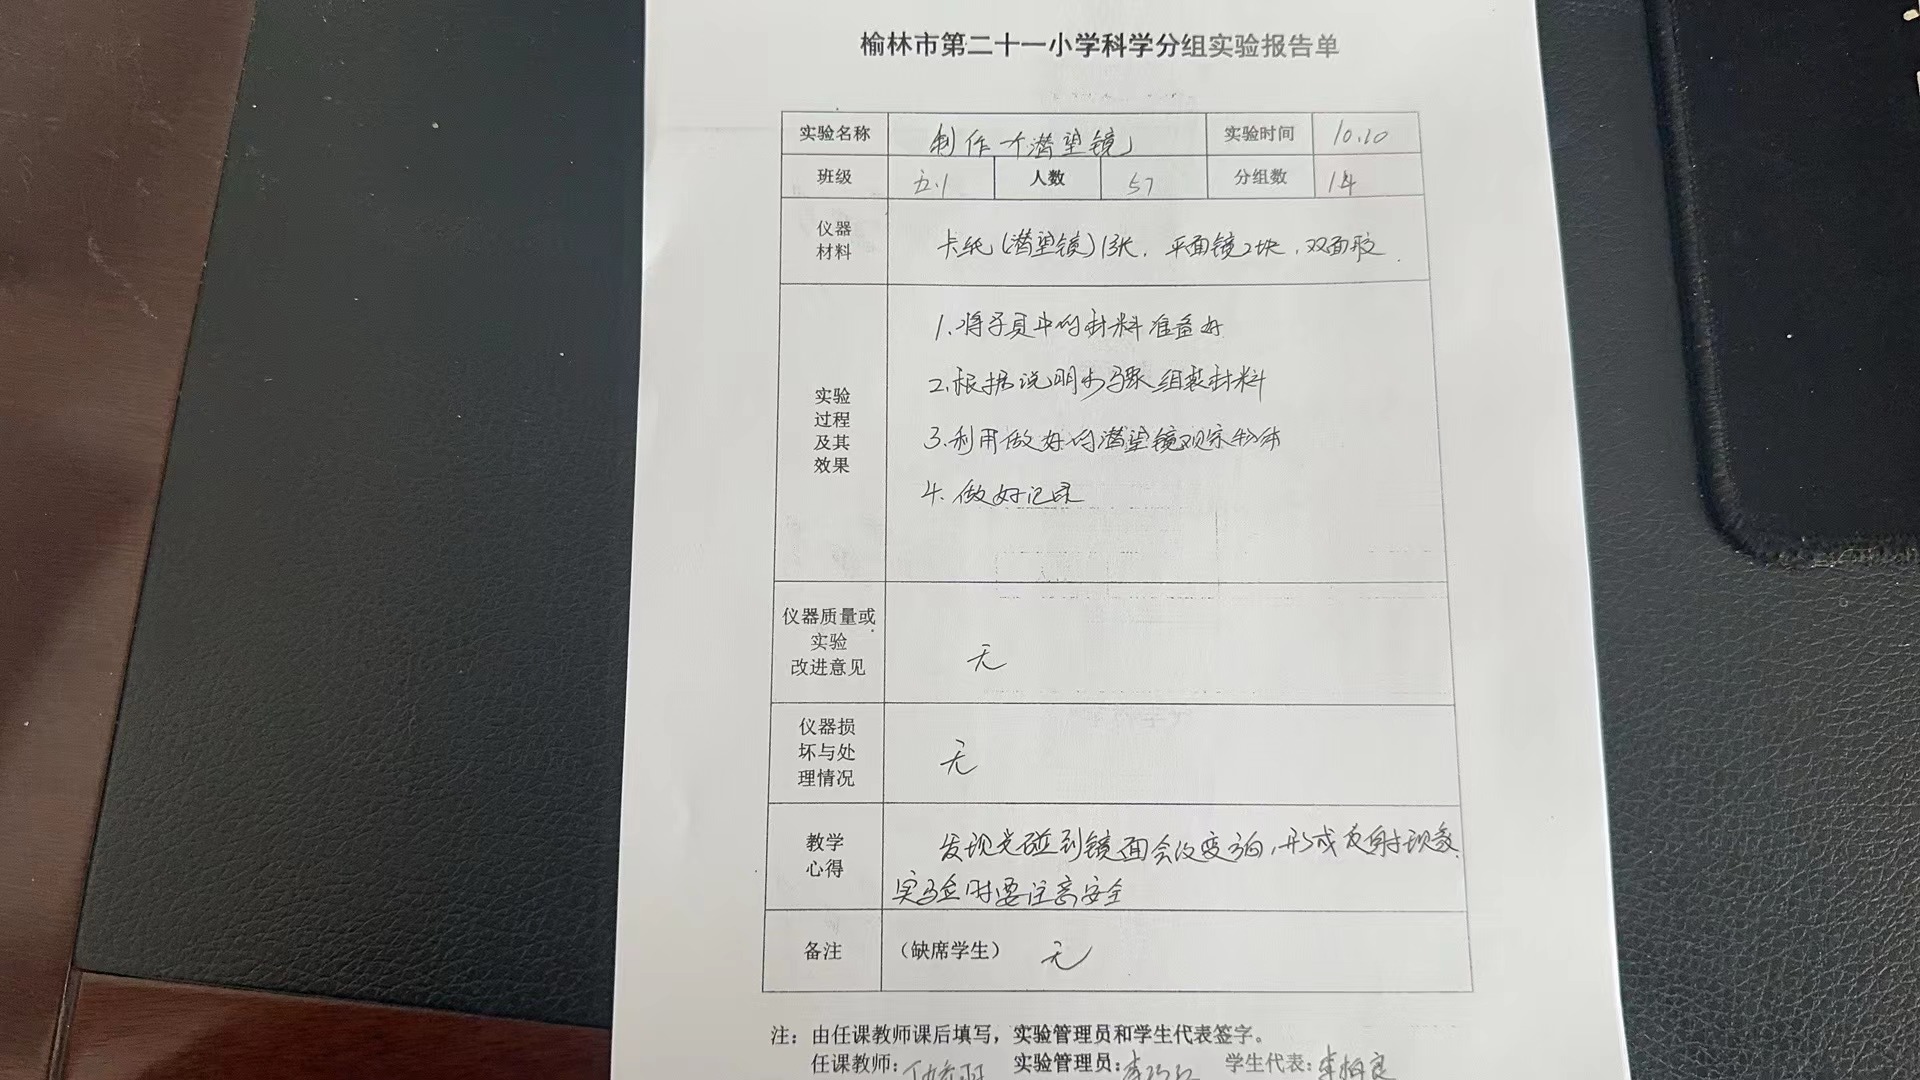 榆林市第二十一小学科学分组实验报告单
实验名称 制作个潜望镜 实验时间 10.10
班级 五.1 人数 57 分组数 14
仪器
材料
卡纸(潜望镜)1张, 平面镜2块, 双面胶.
实验
过程
及其
效果
1.将学具中的材料准备好
2.根据说明步骤组装材料
3.利用做好的潜望镜观察物体
4.做好记录
仪器质量或
实验
改进意见
无
仪器损
坏与处
理情况
无
教学
心得
发现光碰到镜面会改变方向,形成反射现象.
实验时要注意安全
备注 (缺席学生) 无
注: 由任课教师课后填写, 实验管理员和学生代表签字。
任课教师: 实验管理员: 学生代表: 李柏良